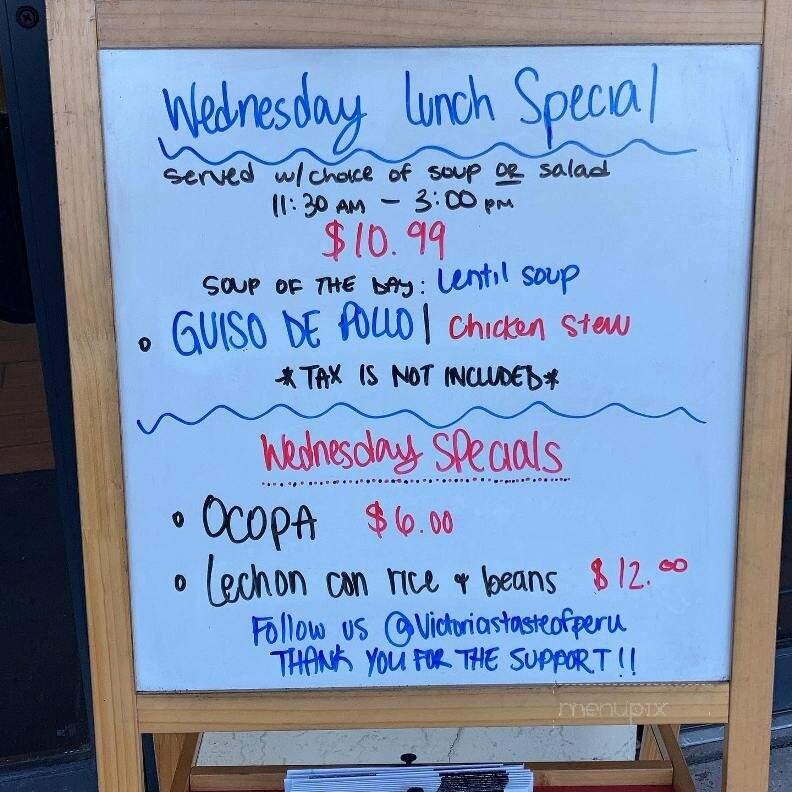 Wednesday lunch Special
served w/choice of soup OR salad
11:30 AM - 3:00 PM
$10.99
SOUP OF THE DAY: Lentil soup
GUISO DE POLLO | Chicken stew
*TAX IS NOT INCLUDED*
Wednesday Specials
OCOPA $6.00
Lechon con rice & beans $12.00
Follow us @Victoriastasteofperu
THANK YOU FOR THE SUPPORT!!
menupix